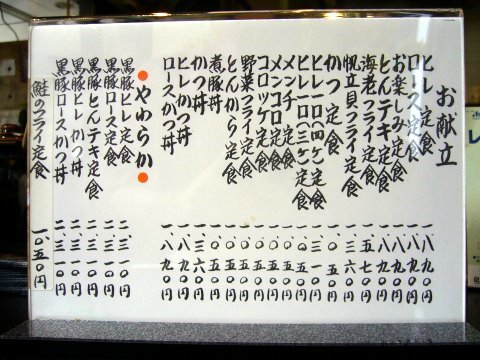 お献立
ヒレ定食 一、八九〇円
ロース定食 一、八九〇円
お楽しみ定食 一、八九〇円
とんテキ定食 一、八九〇円
海老フライ定食 一、五七〇円
帆立貝フライ定食 一、三六〇円
かつ定食 一、一五〇円
ヒレ一〇四ケ定食 一、三一〇円
ヒレ一〇三ケ定食 一、〇五〇円
メンチ定食 一、〇五〇円
メンコロ定食 一、〇五〇円
コロッケ定食 一、〇五〇円
野菜フライ定食 一、〇五〇円
とんから定食 一、〇五〇円
煮豚丼 一、〇五〇円
かつ丼 一、三六〇円
ヒレかつ丼 一、八九〇円
ロースかつ丼 一、八九〇円
●やわらか●
黒豚ヒレ定食 二、三一〇円
黒豚ロース定食 二、三一〇円
黒豚とんテキ定食 二、三一〇円
黒豚ヒレかつ丼 二、三一〇円
黒豚ロースかつ丼 二、三一〇円
鮭のフライ定食 一、〇五〇円